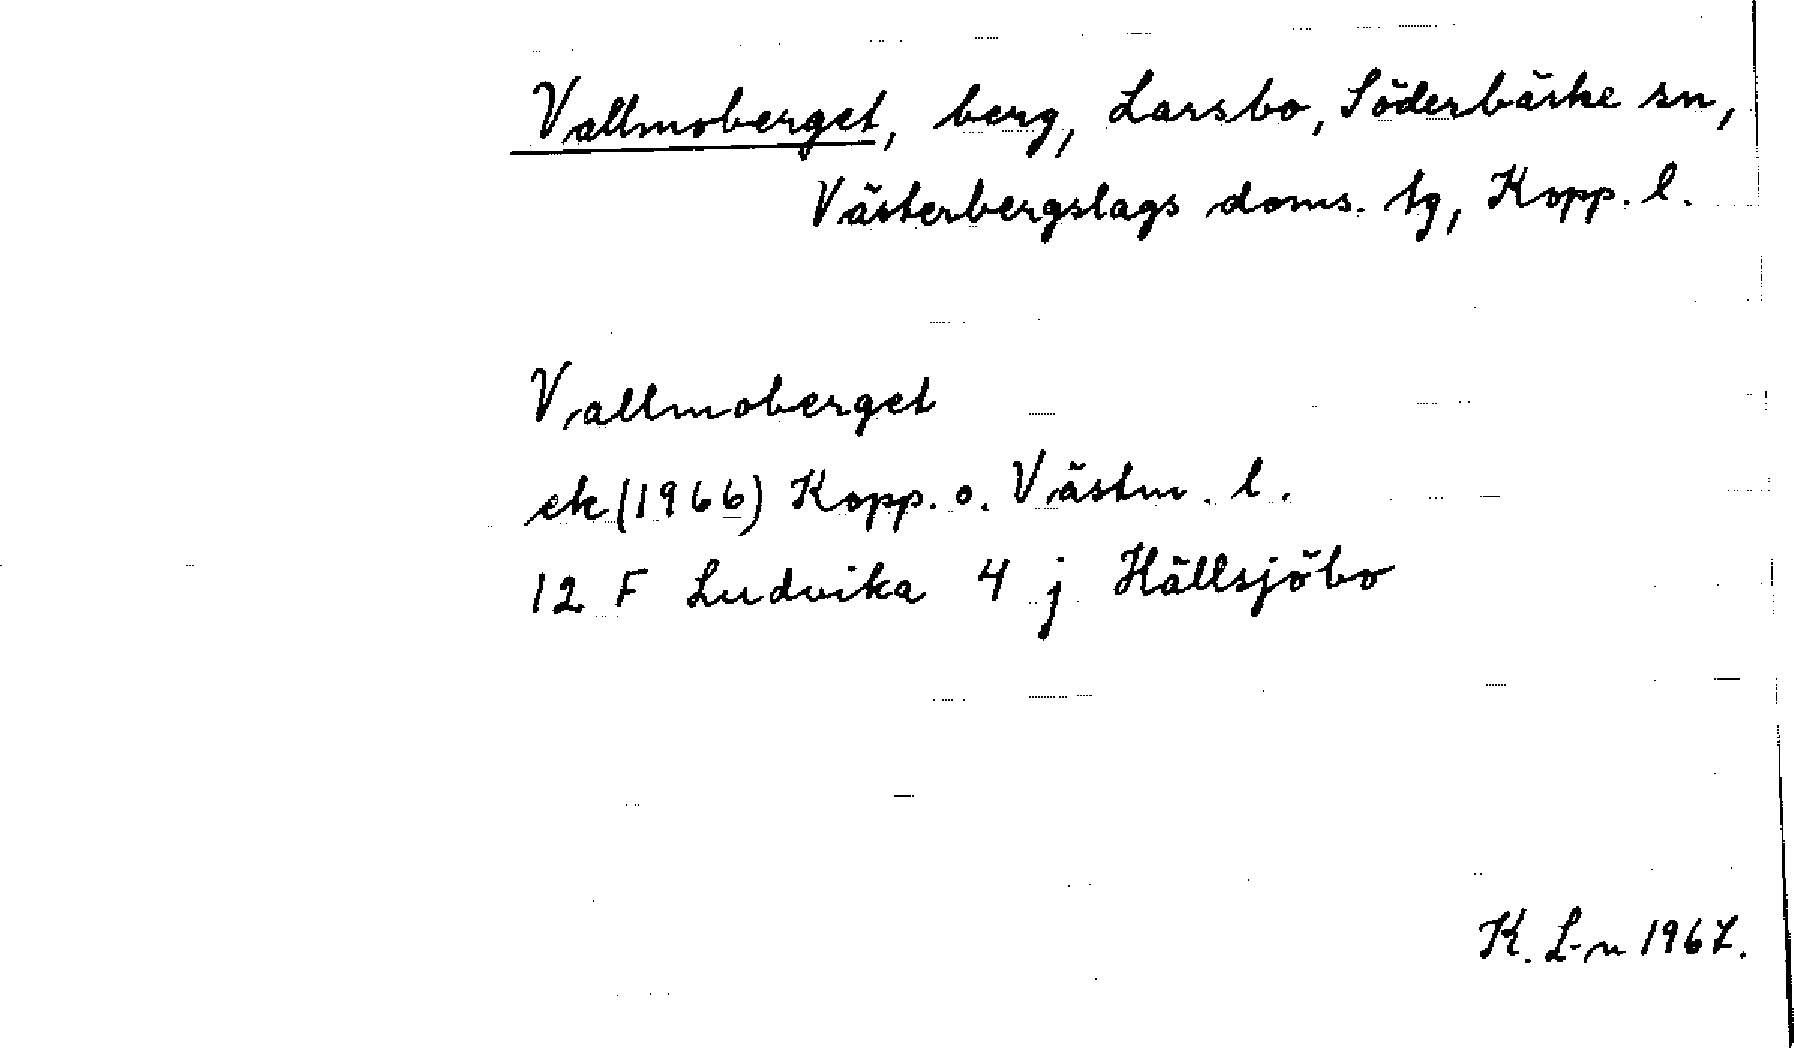 Vallmoberget, berg, Larsbo, Söderbärke sn,
Västerbergslags doms. tg, Kopp. l.
Vallmoberget
ek (1966) Kopp. o. Västm. l.
12 F Ludvika 4 j Hällsjöbo
K. L-n 1967.